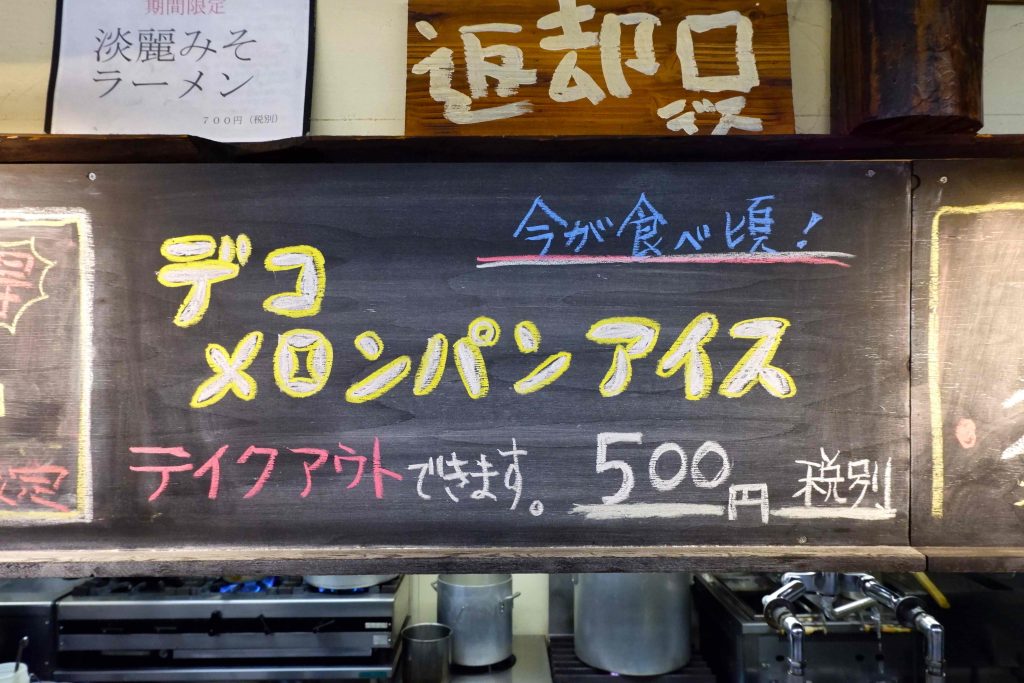 期間限定
淡麗みそ
ラーメン
700円(税別)
返却口
デス
今が食べ頃!
デコ
メロンパンアイス
テイクアウトできます。 500円 税別
定